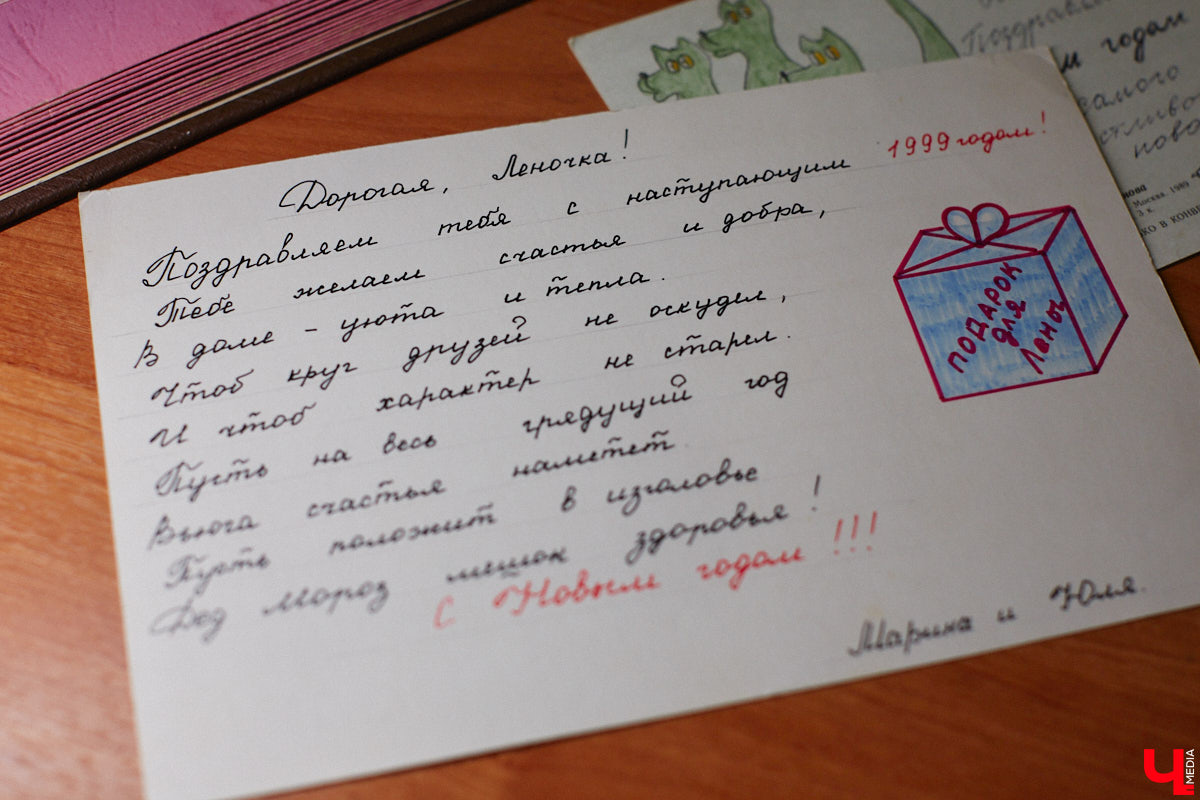 Дорогая, Леночка!
Поздравляем тебя с наступающим 1999 годом!
Тебе желаем счастья и добра,
В доме - уюта и тепла.
Чтоб круг друзей не оскудел,
И чтоб характер не старел.
Пусть на весь грядущий год
Вьюга счастья наметет
Пусть положит в изголовье
Дед Мороз мешок здоровья!
С Новым годом!!!
Марина и Юля.
ПОДАРОК
для
Лены
Поздравля
м годом
самого
нова
Москва. 1989
3 к.
КО В КОНВЕ
Ч
MEDIA